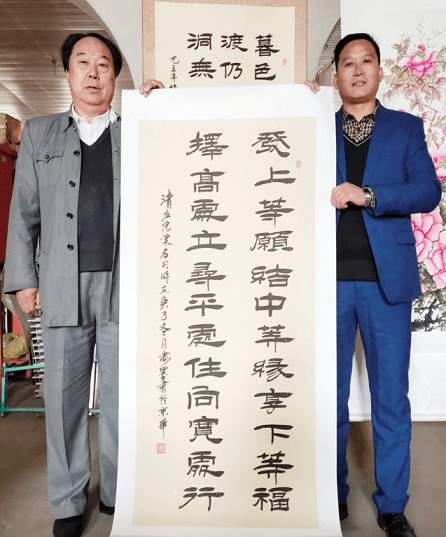 暮色
渡仍
洞無
發上等願結中等緣享下等福
擇高處立尋平處住向寬處行
清左宗棠名句時在庚子冬月書於京華